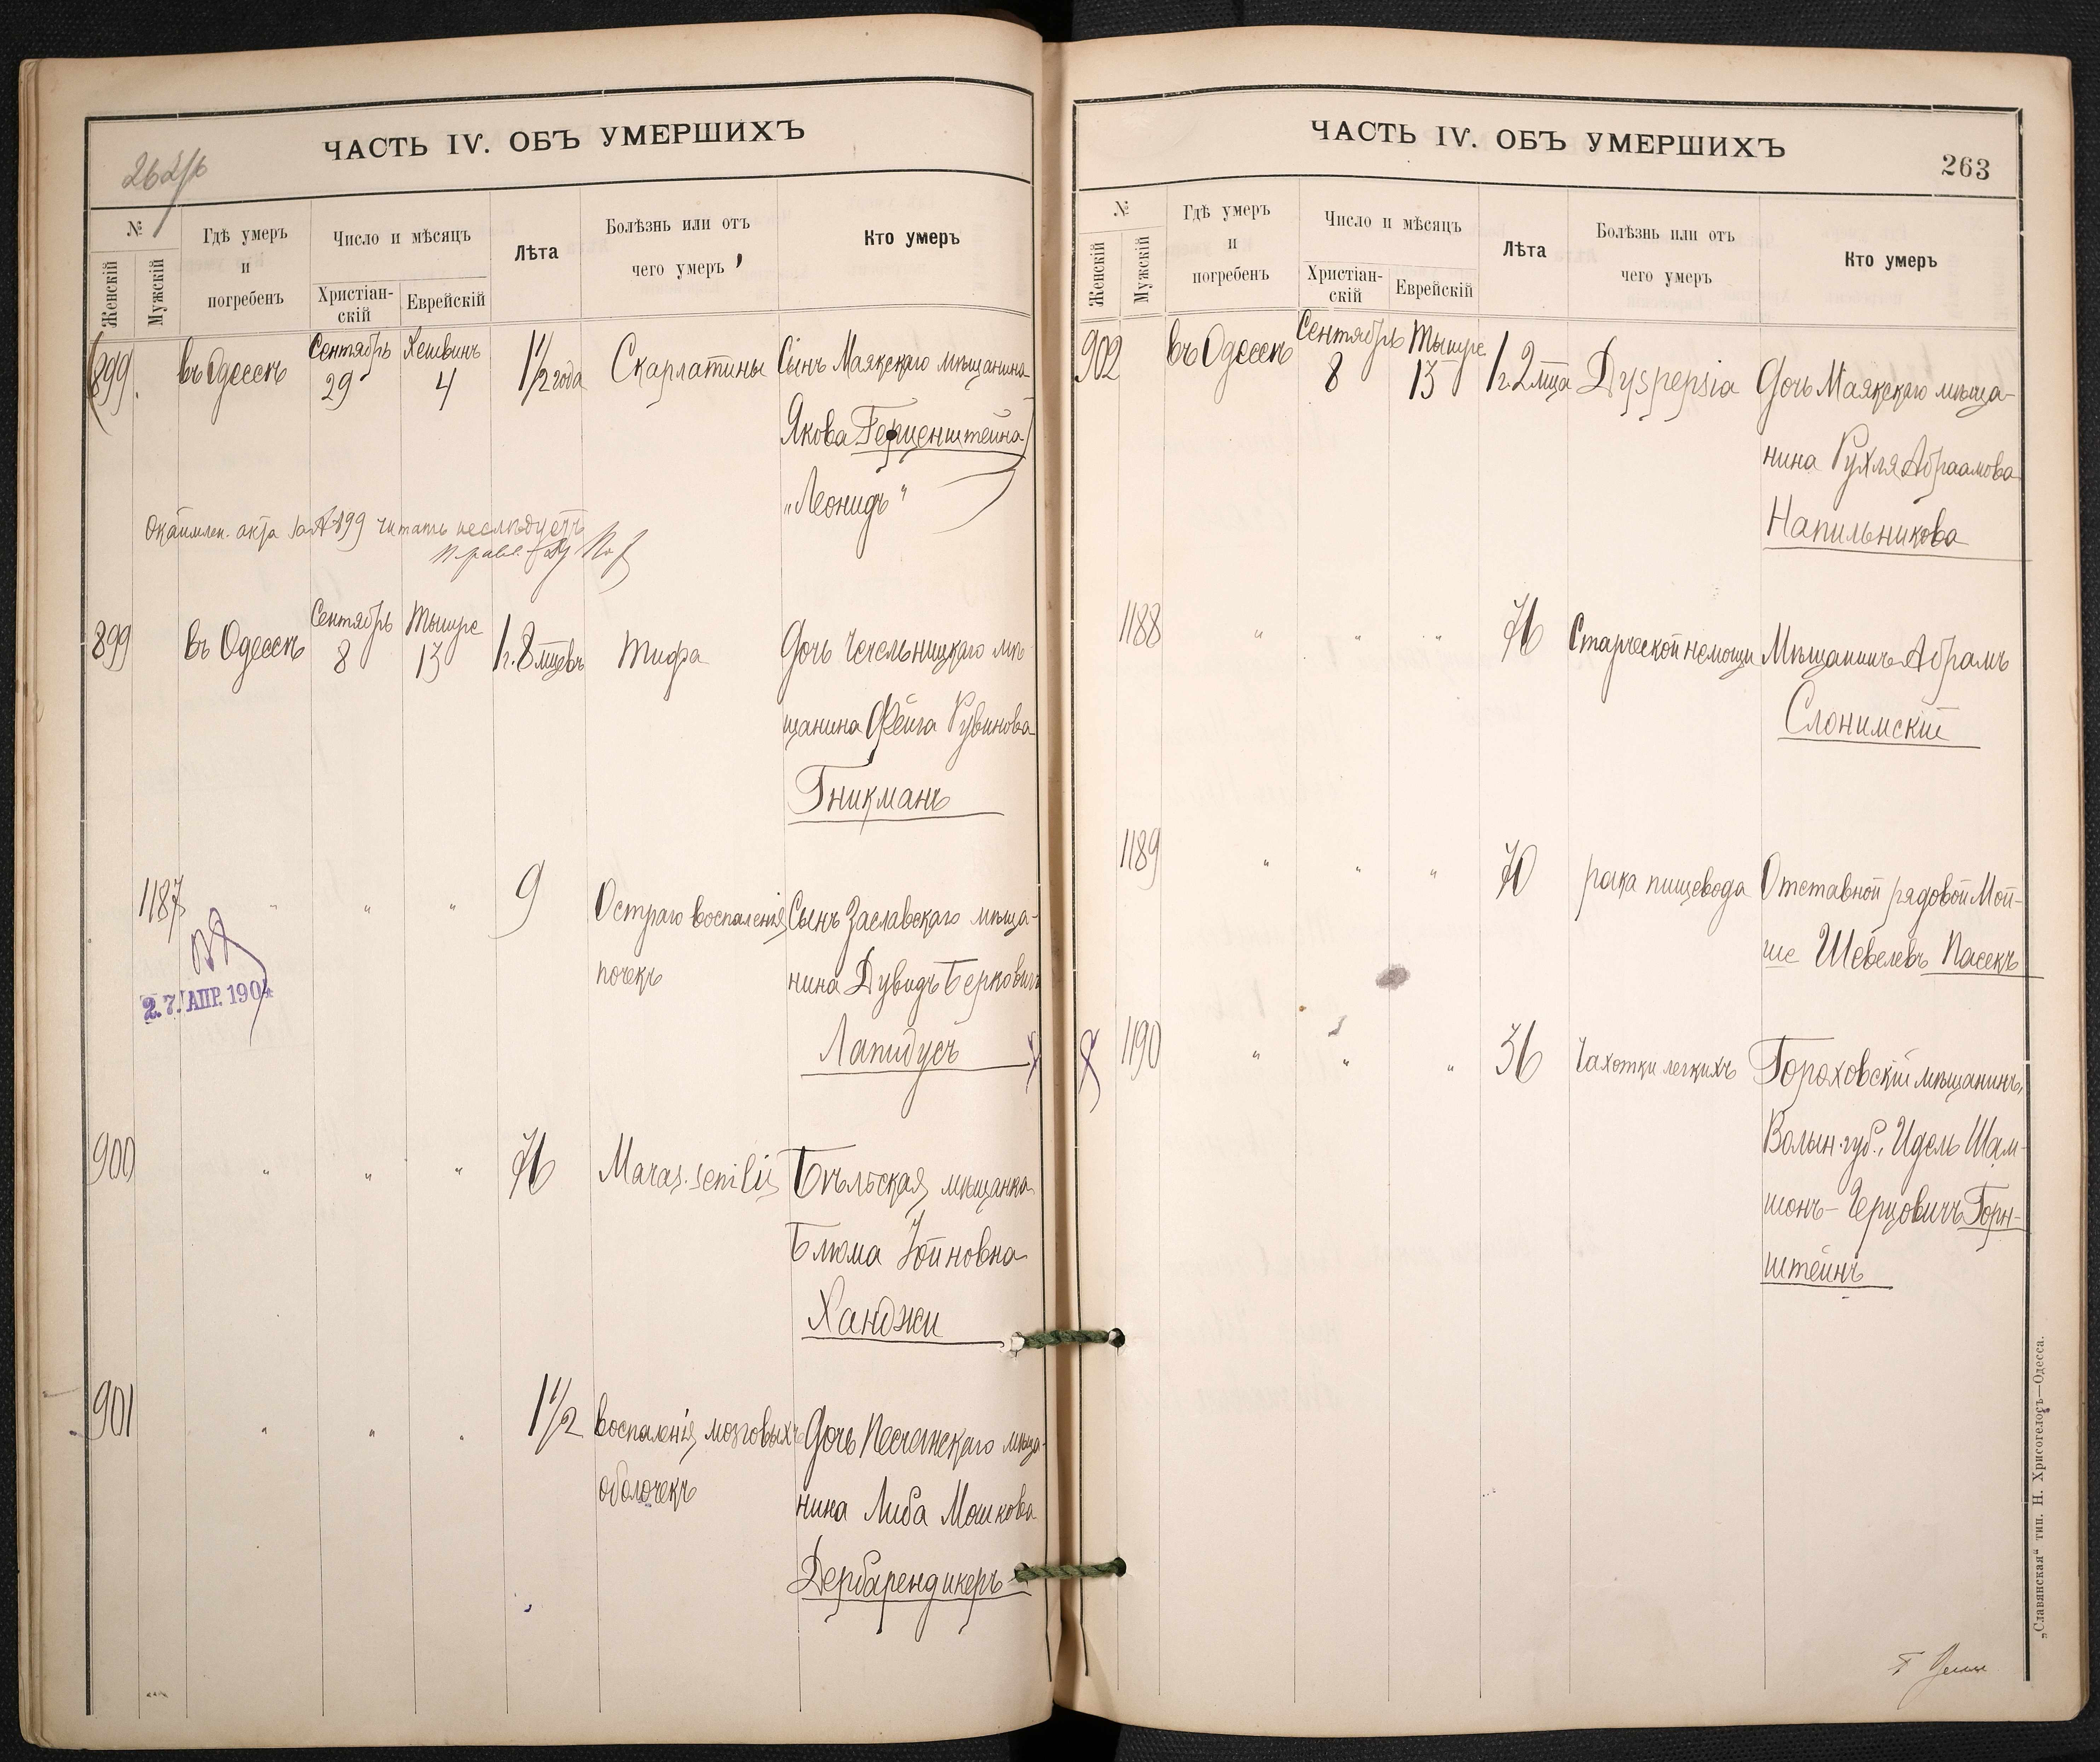 ЧАСТЬ IV. ОБЪ УМЕРШИХЪ
№
Женскій
Мужскій
Гдѣ умеръ
и
погребенъ
Число и мѣсяцъ
Христіан-
скій
Еврейскій
Лѣта
Болѣзнь или отъ
чего умеръ
Кто умеръ
899. въ Одессѣ Сентябрь 29 Хешвинъ 4 1 1/2 года Скарлатины Сынъ Маякскаго мѣщанина
Якова Герценштейна
„Леонидъ“
акта за № 899 читать неслѣдуетъ
899 въ Одессѣ Сентябрь 8 Тышре 13 1 г. 8 мцевъ Тифа Дочь Чечельницкаго мѣ
щанина Фейга Рувинова
Гникманъ
1187 " " " 9 Остраго воспаленія Сынъ Заславскаго мѣща-
почекъ нина Дувидъ Берковичъ
27 АПР. 1904
Лапидусъ
900 " " " 76 Maras. senilis Бѣльская мѣщанка
Блюма Зойновна
Ханджи
901 " " " 1 1/2 воспаленія мозговыхъ Дочь Песчанскаго мѣща-
оболочекъ нина Либа Мошкова
Дербарендикеръ
ЧАСТЬ IV. ОБЪ УМЕРШИХЪ
263
№
Женскій
Мужскій
Гдѣ умеръ
и
погребенъ
Число и мѣсяцъ
Христіан-
скій
Еврейскій
Лѣта
Болѣзнь или отъ
чего умеръ
Кто умеръ
902 въ Одессѣ Сентябрь 8 Тышре 13 1 г. 2 мца Dyspepsia Дочь Маякскаго мѣща-
нина Рухля Абрамова
Напильникова
1188 " " " 76 Старческой немощи Мѣщанинъ Абрамъ
Слонимскій
1189 " " " 70 рака пищевода Отставной рядовой Мой-
ше Шевелевъ Пасекъ
1190 " " " 36 Чахотки легкихъ Гороховскій мѣщанинъ,
Волын. губ., Идель Шам-
шонъ-Герцовичъ Горн-
штейнъ
„Славянская“ тип. Н. Хрисогелосъ—Одесса.